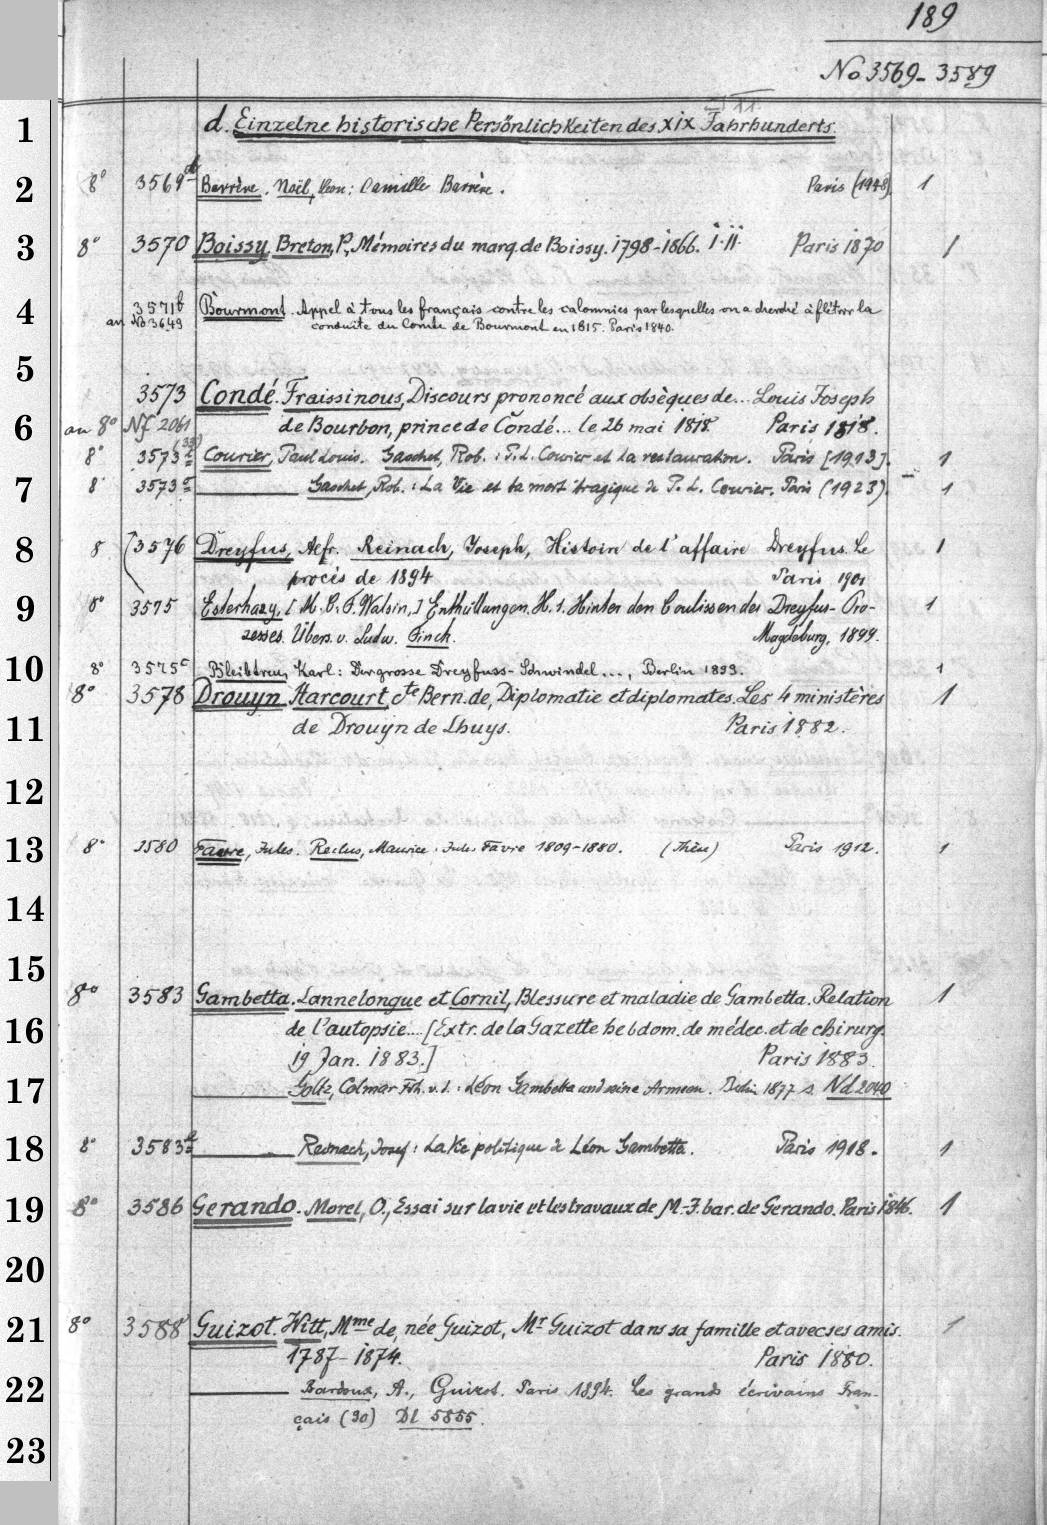 189
No 3569-3589
1 d. Einzelne historische Persönlichkeiten des XIX Jahrhunderts.
2 8° 3569 Barrère. Noël, Léon: Camille Barrère. Paris (1948). 1
3 8° 3570 Boissy. Breton, P., Mémoires du marq. de Boissy. 1798-1866. I.II. Paris 1870 1
4 3571b Bourmont. Appel à tous les français contre les calomnies par lesquelles on a cherché à flétrir la
an No 3649 conduite du Comte de Bourmont en 1815. Paris 1840.
5
3573 Condé. Fraissinous, Discours prononcé aux obsèques de... Louis Joseph
6 an 8° Nf 2061 de Bourbon, prince de Condé... le 26 mai 1818. Paris 1818.
8° 3573 Courier, Paul Louis. Gaschet, Rob.: P. L. Courier et la restauration. Paris [1913]. 1
7 8° 3573a Gaschet, Rob.: La Vie et la mort tragique de P. L. Courier. Paris (1923). 1
8 8 3576 Dreyfus, Alfr. Reinach, Joseph, Histoire de l'affaire Dreyfus. Le
procès de 1894 Paris 1901 1
9 8° 3575 Esterhazy, [M. C. F. Walsin,] Enthüllungen. H. 1. Hinter den Coulissen des Dreyfus-Pro-
zesses. Übers. v. Ludw. Finch. Magdeburg, 1899. 1
10 8° 3575c Bleibtreu, Karl: Der grosse Dreyfuss-Schwindel..., Berlin 1899. 1
8° 3578 Drouyn Harcourt, cte Bern. de, Diplomatie et diplomates. Les 4 ministères 1
11 de Drouyn de Lhuys. Paris 1882.
12
13 8° 3580 Favre, Jules. Reclus, Maurice: Jules Favre 1809-1880. (Thèse) Paris 1912. 1
14
15
8° 3583 Gambetta. Lannelongue et Cornil, Blessure et maladie de Gambetta. Relation 1
16 de l'autopsie... [Extr. de la Gazette hebdom. de médec. et de chirurg.
19 Jan. 1883.] Paris 1883.
17 Goltz, Colmar Frh. v. d.: Léon Gambetta und seine Armeen. Berlin 1877 s. Nd 2040
18 8° 3583a Reinach, Josef: La Vie politique de Léon Gambetta. Paris 1918. 1
19 8° 3586 Gerando. Morel, O., Essai sur la vie et les travaux de M.-J. bar. de Gerando. Paris 1846. 1
20
21 8° 3588 Guizot. Witt, Mme de, née Guizot, Mr Guizot dans sa famille et avec ses amis. 1
1787-1874. Paris 1880.
22 Bardoux, A., Guizot. Paris 1894. Les grands écrivains Fran-
çais (30) Dl 5855.
23